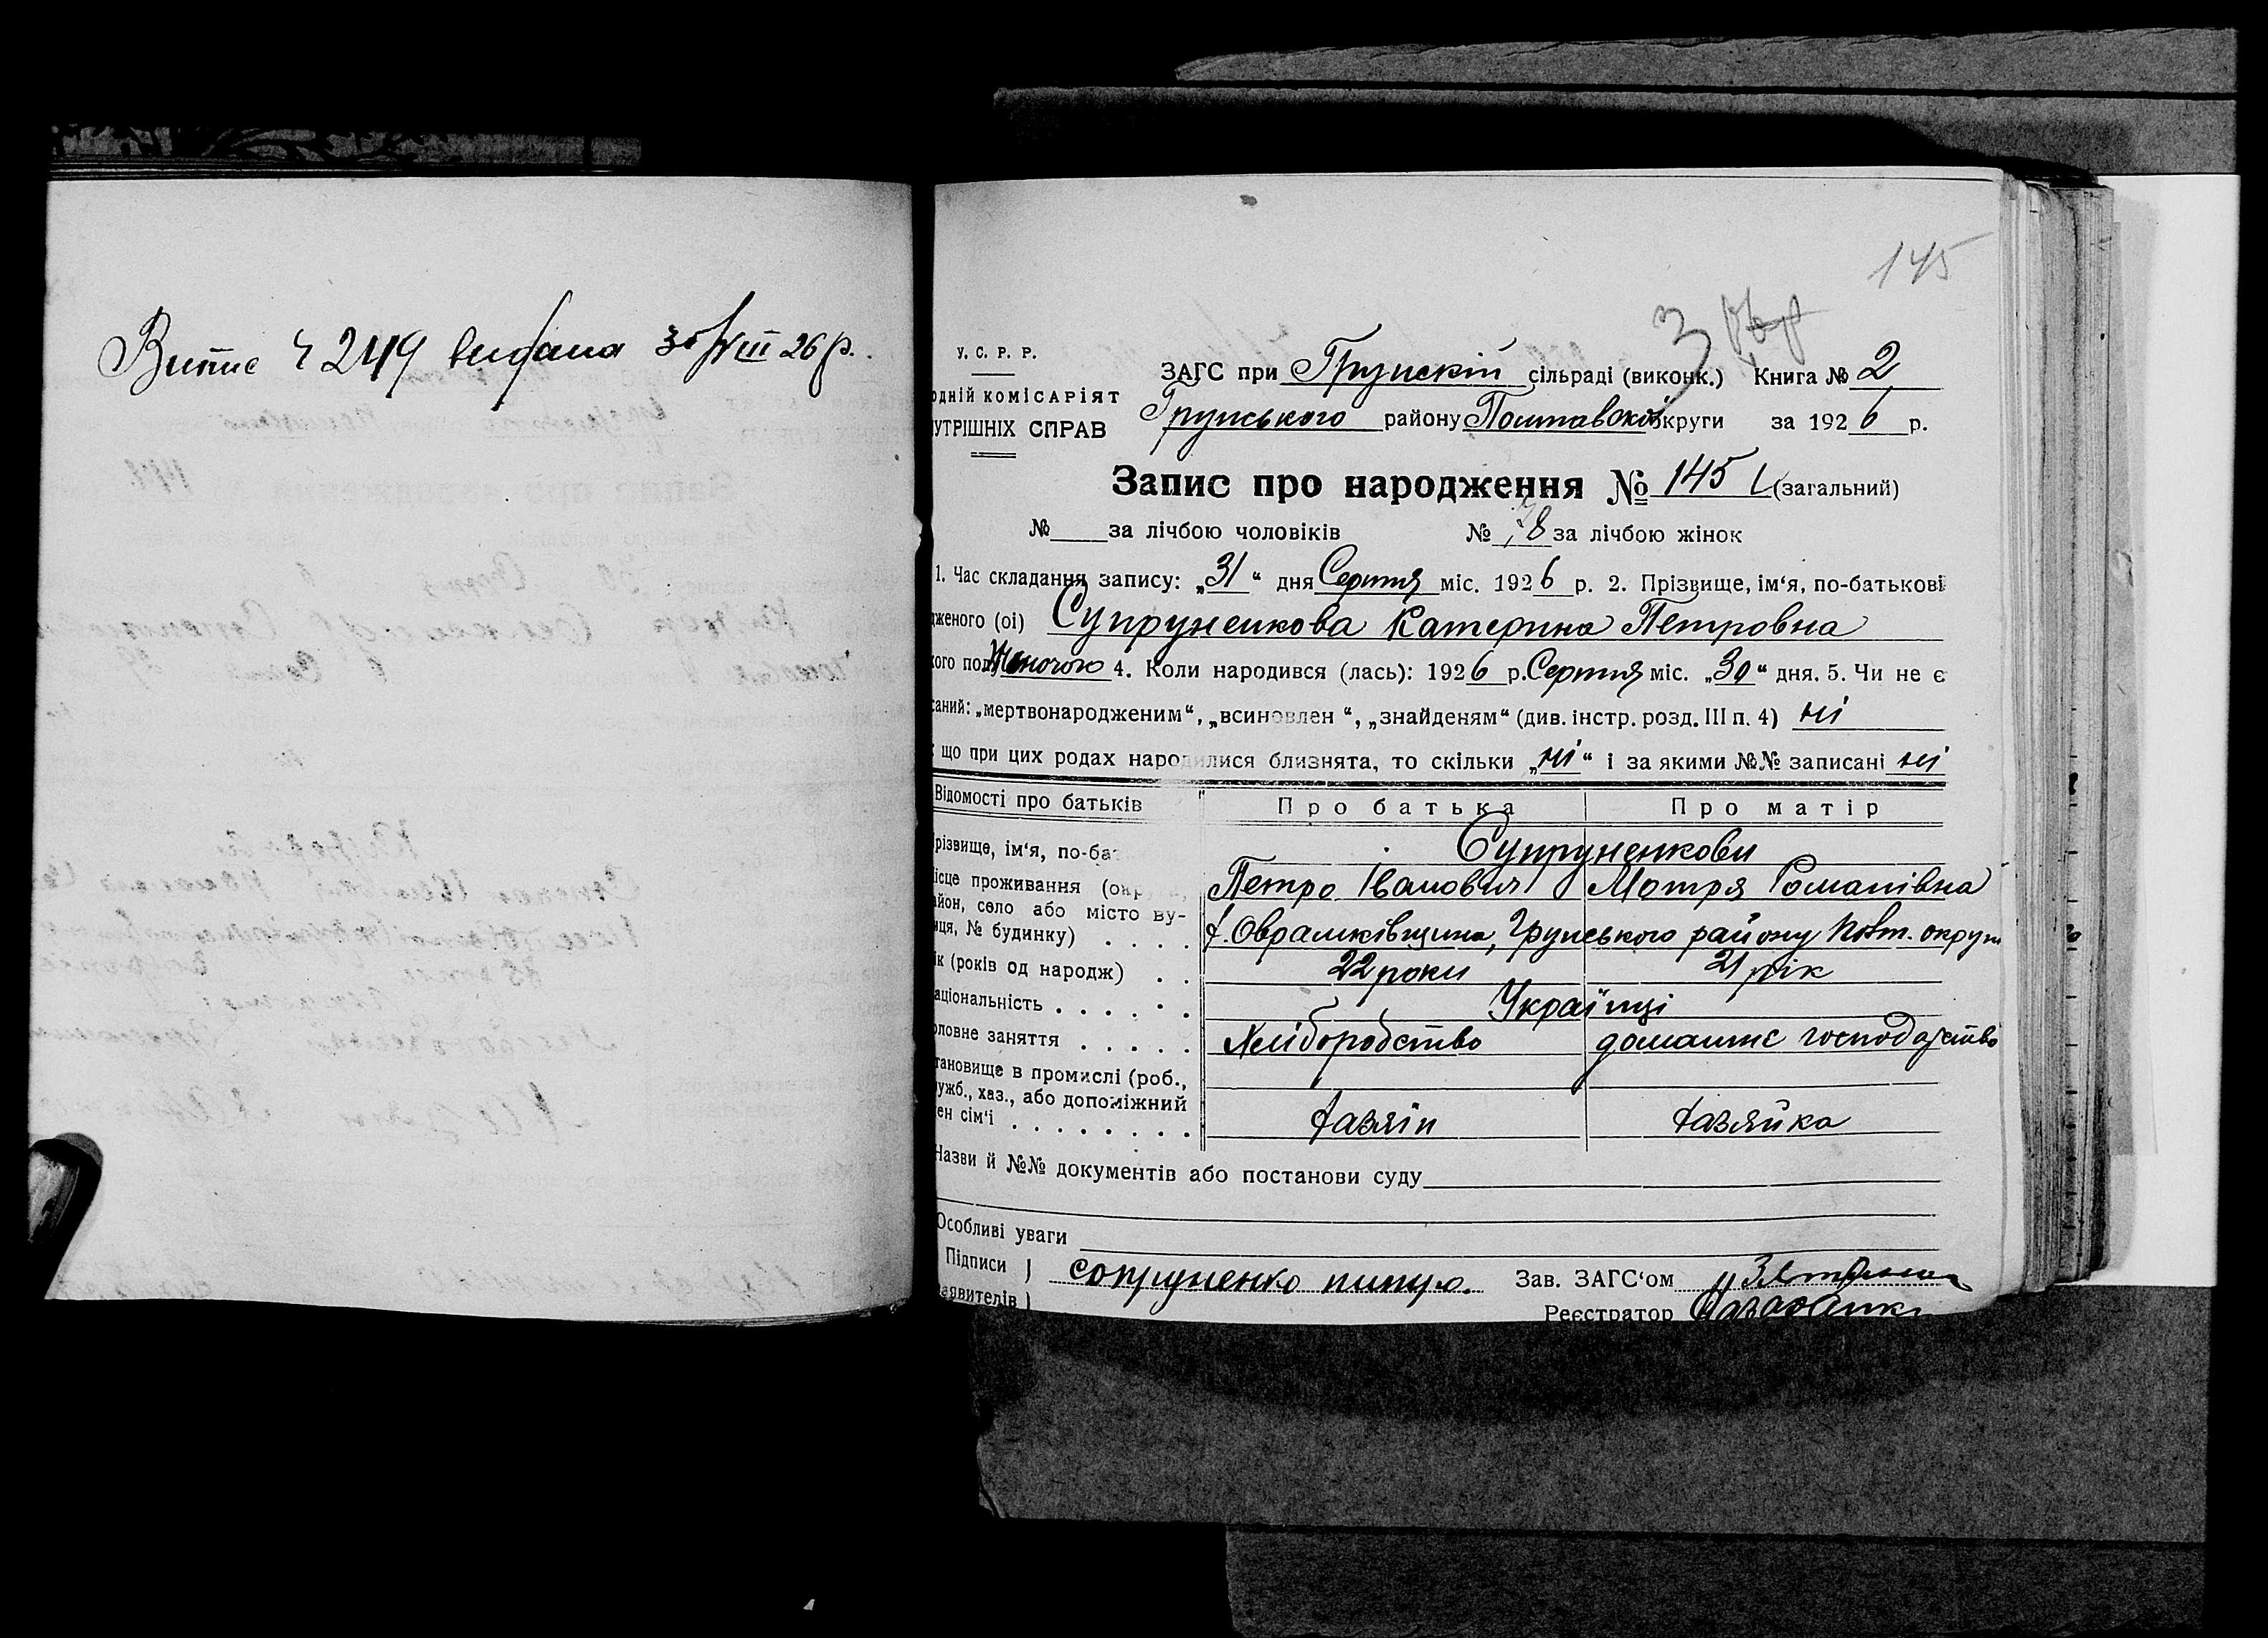 Витис ч 249 видана 31/VIII 26 р.
145
3
У. С. Р. Р.
ЗАГС при Грунскій сільраді (виконк.) Книга № 2
одній КОМІСАРІЯТ
УТРІШНІХ СПРАВ
Грунського району Полтавської округи за 1926 р.
Запис про народження № 145 (загальний)
№ за лічбою чоловіків № 78 за лічбою жінок
1. Час складання запису: „31“ дня Серпня міс. 1926 р. 2. Прізвище, ім‘я, по-батькові
дженого (ої) Супруненкова Катерина Петровна
кого полу Жіночого 4. Коли народився (лась): 1926 р. Серпня міс. „30“ дня. 5. Чи не є
саний: „мертвонародженим“, „всиновлен “, „знайденям“ (див. інстр. розд. III п. 4) ні
що при цих родах народилися близнята, то скільки „ні“ і за якими №№ записані ні
Відомості про батьків Про батька Про матір
різвище, ім‘я, по-ба Супруненкови
ісце проживання (округа, Петро Іванович Мотря Романівна
айон, село або місто ву-
иця, № будинку) . . . . х. Оврамківщина, Грунського району Полт. округи
ік (років од народж) . . 22 роки 21 рік
аціональність . . . . . . Українці
оловне заняття . . . . . Хліборобство домашнє господарство
тановище в промислі (роб.,
ужб., хаз., або допоміжний
ен сім‘і . . . . . . . . хазяїн хазяйка
Назви й №№ документів або постанови суду
Особливі уваги
Підписи } сопруненко питро. Зав. ЗАГС‘ом
аявителів } Реєстратор